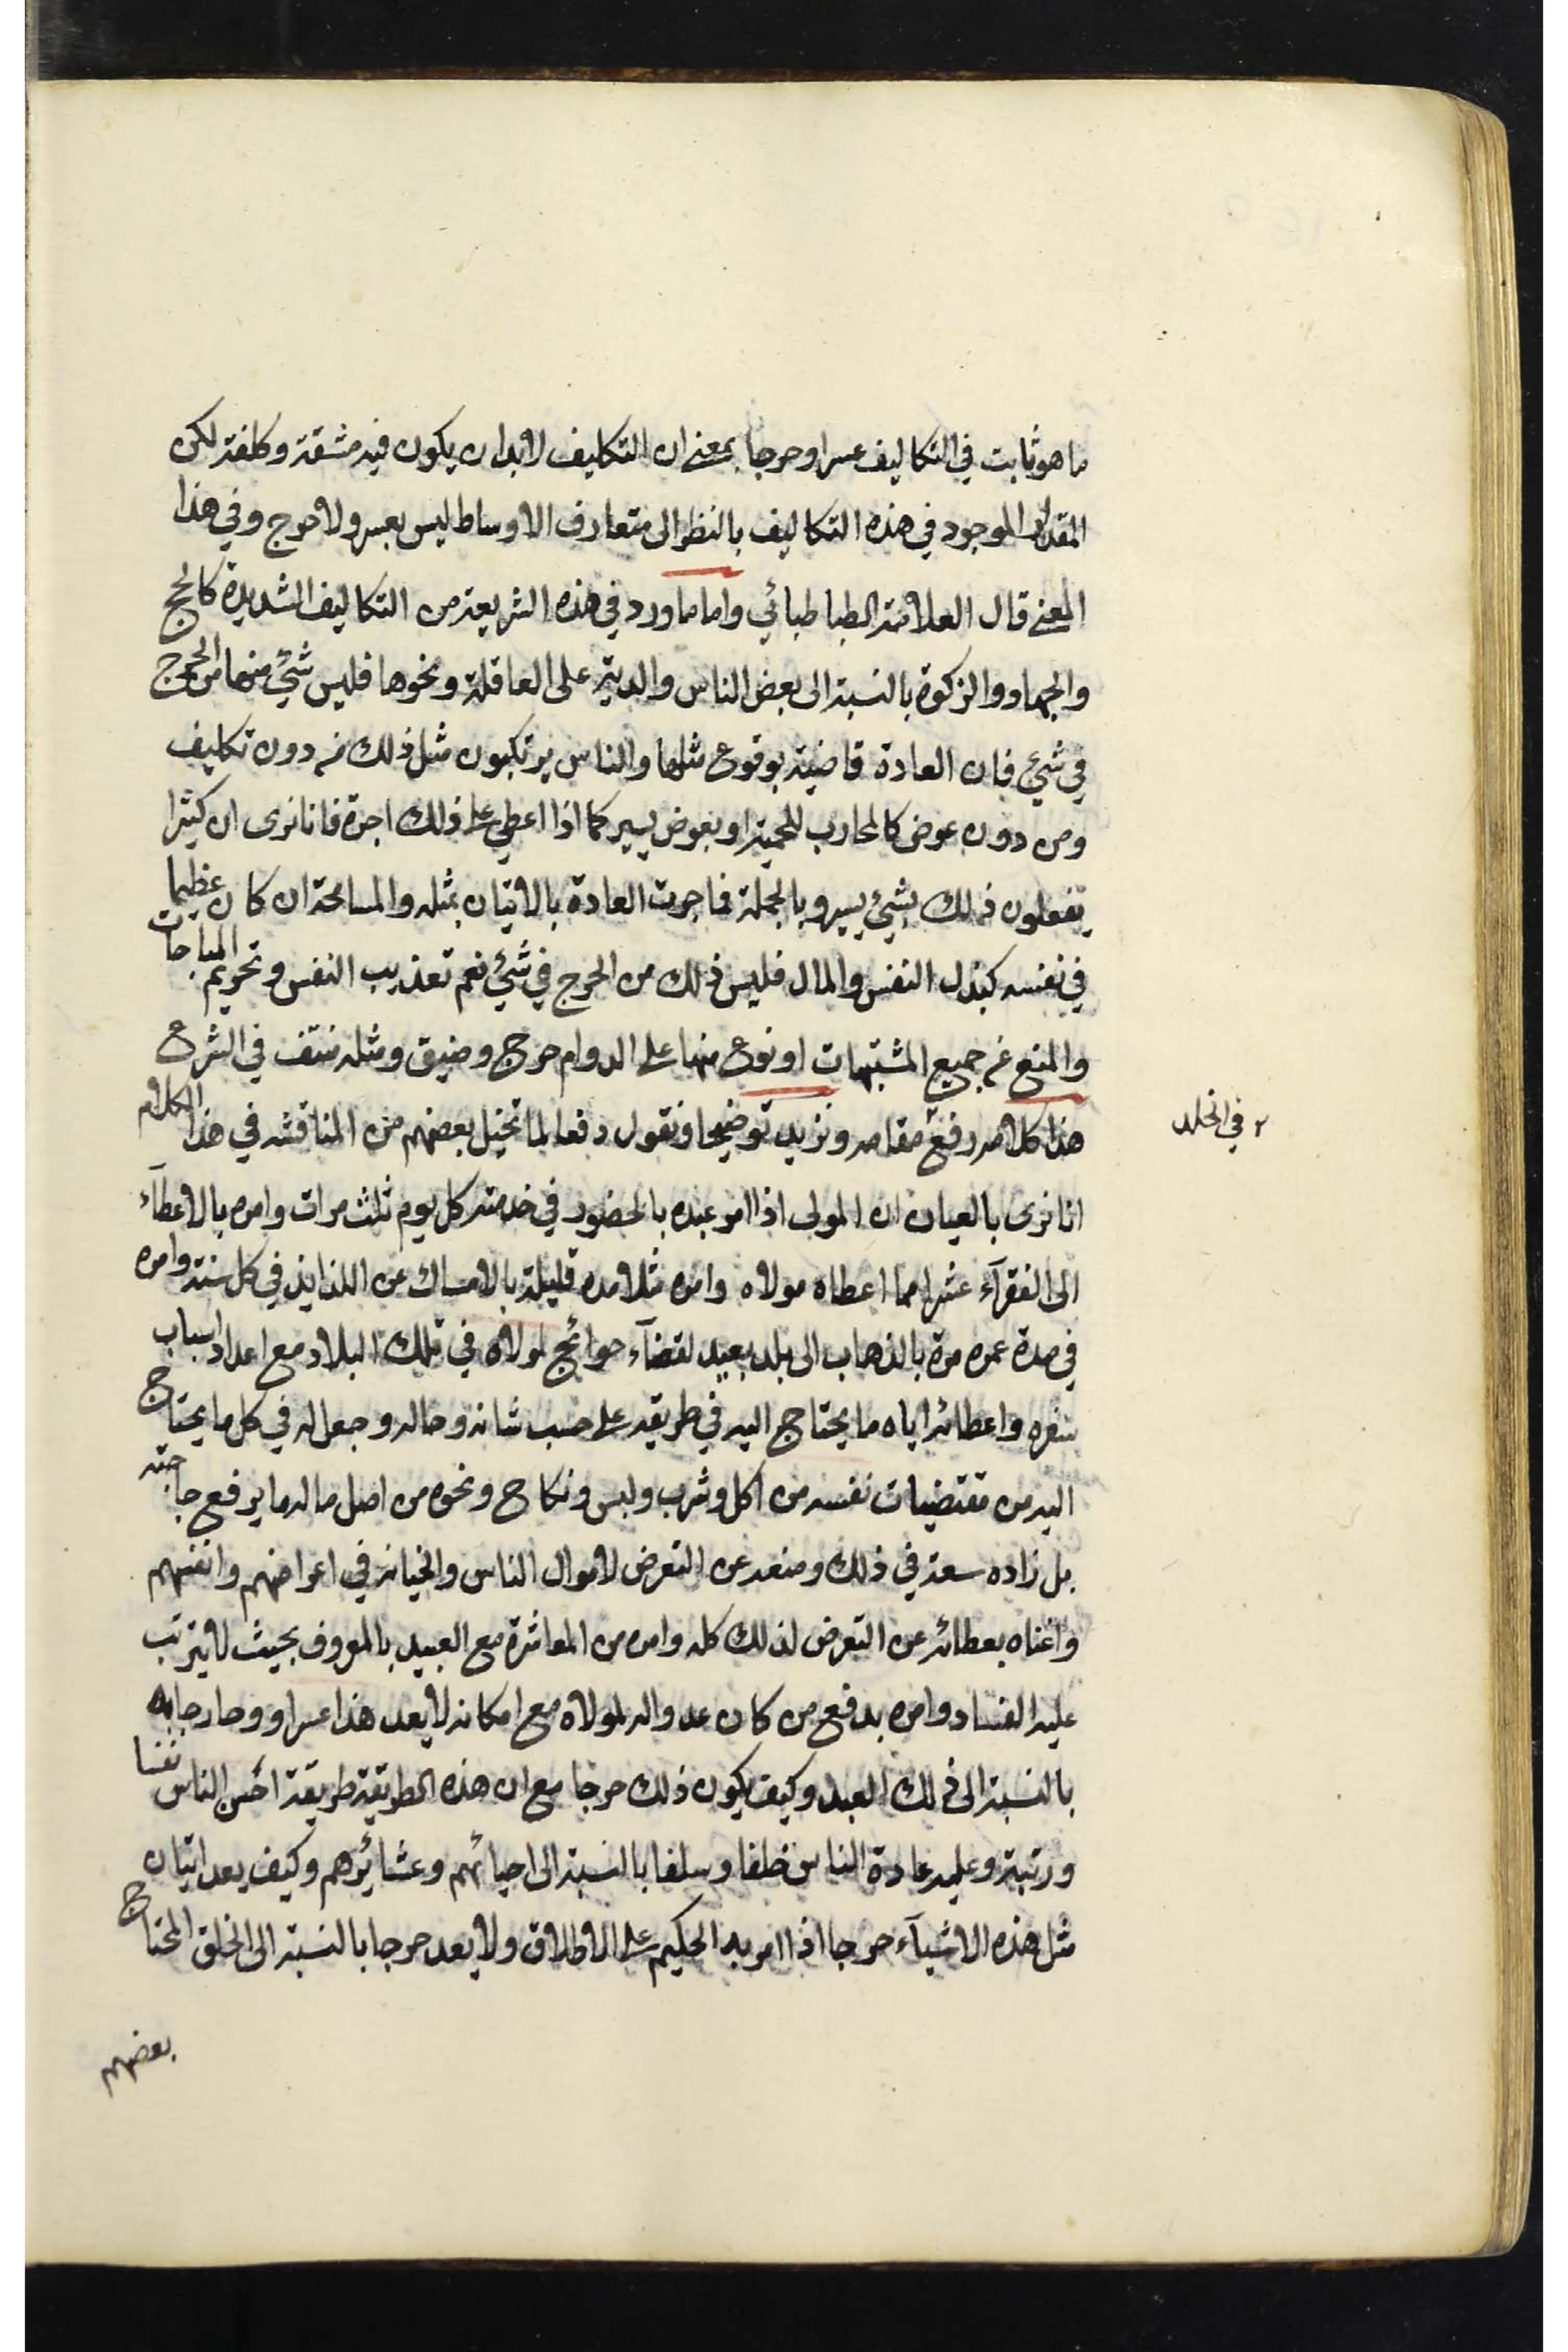 ما هو ثابت في التكاليف عسرا وحرجا بمعنى ان التكليف لابد ان يكون فيه مشقة وكلفة لكن
المقدار الموجود في هذه التكاليف بالنظر الى متعارف الاوساط ليس بعسر ولا حرج وفي هذا
المعنى قال العلامة الطباطبائي واما ما ورد في هذه الشريعة من التكاليف الشديدة كالحج
والجهاد والزكوة بالنسبة الى بعض الناس والدية على العاقلة ونحوها فليس شئ منها من الحرج
في شئ فان العادة قاضية بوقوع مثلها والناس يرتكبون مثل ذلك من دون تكليف
ومن دون عوض كالمحارب للحمية او بعوض يسير كما اذا اعطي على ذلك اجرة فانا نرى ان كثيرا
يفعلون ذلك بشئ يسير وبالجملة فما جرت العادة بالاتيان بمثله والمسامحة ان كان عظيما
في نفسه كبذل النفس والمال فليس ذلك من الحرج في شئ نعم تعذيب النفس وتحريم المباحات
والمنع عن جميع المشتهيات او نوع منها على الدوام حرج وضيق ومثله منتف في الشرع
هذا كلامه رفع مقامه ونزيد توضيحا ونقول دفعا لما تخيل بعضهم من المناقشة في هذا الكلام
انا نرى بالعيان ان المولى اذا امر عبده بالحضور في خدمته كل يوم ثلث مرات وامره بالاعطآء
الى الفقرآء عشرا مما اعطاه مولاه وامره مثلا مدة قليلة بالامساك عن اللذايذ في كل سنة وامره
في مدة عمره مرة بالذهاب الى بلد بعيد لقضآء حوائج لمولاه في تلك البلاد مع اعداد اسباب
سفره واعطائه اياه ما يحتاج اليه في طريقه على حسب شانه وحاله وجعل له في كل ما يحتاج
اليه من مقتضيات نفسه من اكل وشرب ولبس ونكاح ونحوه من اصل ماله ما يرفع حاجته
بل زاده سعة في ذلك ومنعه عن التعرض لاموال الناس والخيانة في اعراضهم وانفسهم
واغناه بعطائه عن التعرض لذلك كله وامره من المعاشرة مع العبيد بالمعروف بحيث لا يترتب
عليه الفساد وامره بدفع من كان عدوا له لمولاه مع امكانه لا يعد هذا عسرا و وحارجا به
بالنسبة الى ذلك العبد وكيف يكون ذلك حرجا مع ان هذه الطريقة طريقة احسن الناس نفسا
ورتبة وعليه عادة الناس خلفا وسلفا بالنسبة الى احيائهم وعشائرهم وكيف يعد اتيان
مثل هذه الاشيآء حرجا اذا امر به الحكيم على الاطلاق ولا يعد حرجا بالنسبة الى الخلق المحتاج
بعضهم
٢ في الخلد